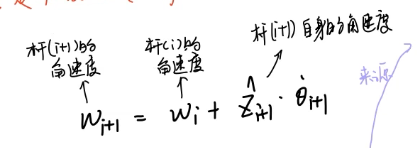 杆(i+1)自身的角速度
杆(i+1)的
角速度
杆(i)的
角速度
来源
w_{i+1} = w_i + \hat{Z}_{i+1} · \dot{θ}_{i+1}